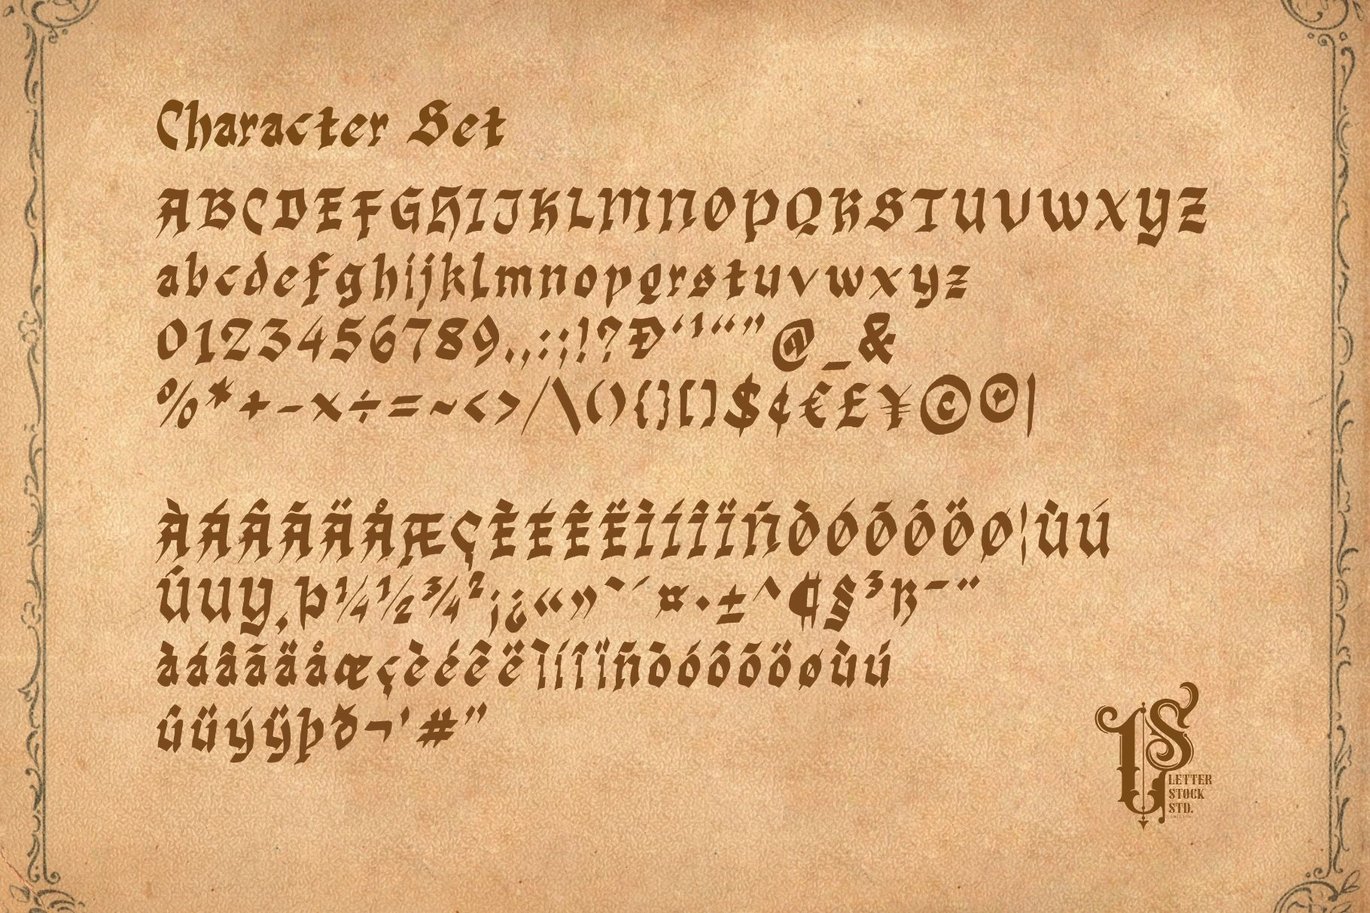 Character Set
ABCDEFGHIJKLMNOPQRSTUVWXYZ
abcdefghijklmnopqrstuvwxyz
0123456789.,:;!?Ð‘'“”@_&
%*+-×÷=~<>/\(){}[]$¢€£¥©®|
ÀÁÂÃÄÅÆÇÈÉÊËÌÍÎÏÑÒÓÔÕÖØ¦ÙÚ
ÛUY¸Þ¼½¾²¡¿«»`´¤·±^¶§³ß¯¨
àáâãäåæçèéêëìíîïñòóôõöøùú
ûüýÿþð¬'#"
LETTER
STOCK
STD.